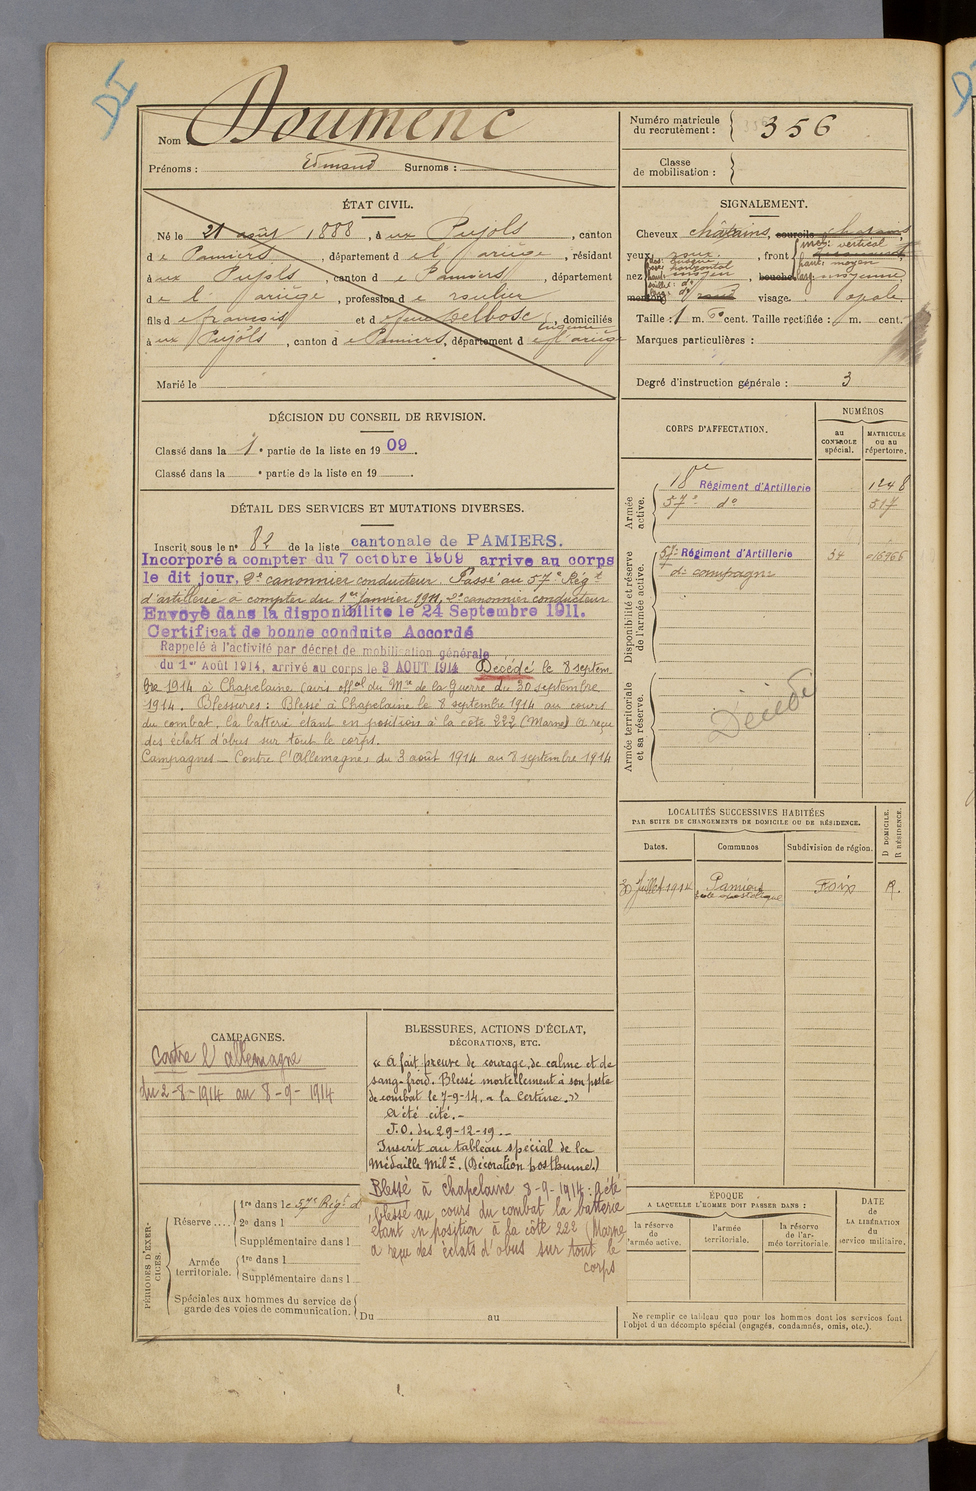 DI
Nom Doumenc
Prénoms : Edmond Surnoms :
Numéro matricule du recrutement : 356
Classe de mobilisation :
ÉTAT CIVIL.
Né le 21 août 1888, à ux Pujols, canton
d e Pamiers, département d e l'ariège, résidant
à ux Pujols, canton d e Pamiers, département
d e l'ariège, profession d e roulier
fils d e françois et d e feue Delbosc Eugénie, domiciliés
à ux Pujols, canton d e Pamiers, département d e l'ariège
Marié le
SIGNALEMENT.
Cheveux châtains, sourcils châtains
yeux roux, front incl: vertical
haut: moyen
larg: moyenne
nez dos: busqué
base: horizontal
haut: moyen
saillie: d°
larg: d°
bouche
menton rond visage. opale.
Taille : 1 m. 60 cent. Taille rectifiée : m. cent.
Marques particulières :
Degré d'instruction générale : 3
DÉCISION DU CONSEIL DE REVISION.
Classé dans la 1e partie de la liste en 19 09.
Classé dans la e partie de la liste en 19 .
DÉTAIL DES SERVICES ET MUTATIONS DIVERSES.
Inscrit sous le n° 82 de la liste cantonale de PAMIERS.
Incorporé a compter du 7 octobre 1909 arrive au corps
le dit jour. 2e canonnier conducteur. Passé au 57e Régt
d'artillerie à compter du 1er Janvier 1911, 2e canonnier conducteur
Envoyé dans la disponibilite le 24 Septembre 1911.
Certificat de bonne conduite Accordé
Rappelé à l'activité par décret de mobilisation générale
du 1er Août 1914, arrivé au corps le 3 AOUT 1914 Décédé le 8 septem
bre 1914 à Chapelaine (avis offel du Mre de la Guerre du 30 septembre
1914. Blessures : Blessé à Chapelaine le 8 septembre 1914 au cours
du combat, la batterie étant en position à la côte 222 (Marne) a reçu
des éclats d'obus sur tout le corps.
Campagnes — Contre l'Allemagne, du 3 août 1914 au 8 septembre 1914
CORPS D'AFFECTATION.
NUMÉROS
au CONTROLE spécial.
MATRICULE ou au répertoire.
Armée active.
18e Régiment d'Artillerie 1248
57e d° 517
Disponibilité et réserve de l'armée active.
57e Régiment d'Artillerie 34
d° campagne
Armée territoriale et sa réserve.
Décédé
LOCALITÉS SUCCESSIVES HABITÉES
PAR SUITE DE CHANGEMENTS DE DOMICILE OU DE RÉSIDENCE.
Dates. Communes Subdivision de région. D DOMICILE. R RÉSIDENCE.
30 Juillet 1914 Pamiers Foix R.
CAMPAGNES.
Contre l'allemagne
du 2-8-1914 au 8-9-1914
BLESSURES, ACTIONS D'ÉCLAT,
DÉCORATIONS, ETC.
« A fait preuve de courage, de calme et de
sang-froid. Blessé mortellement à son poste
de combat le 7-9-14, a la Certine. »
A été cité.-
J.O. du 29-12-19.-
Inscrit au tableau spécial de la
Médaille Milre. (Décoration posthume.)
Blessé à chapelaine 8-9-1914 : a été
blessé au cours du combat la batterie
étant en position à la côte 222 (Marne
a reçu des éclats d'obus sur tout le
corps
PÉRIODES D'EXERCICES.
Réserve....
1re dans le 57e Régt d
2e dans l
Supplémentaire dans l
Armée territoriale.
1re dans l
Supplémentaire dans l
Spéciales aux hommes du service de
garde des voies de communication.
Du au
ÉPOQUE
A LAQUELLE L'HOMME DOIT PASSER DANS :
la réserve de l'armée active.
l'armée territoriale.
la réserve de l'armée territoriale.
DATE de LA LIBÉRATION du service militaire.
Ne remplir ce tableau que pour les hommes dont les services font
l'objet d'un décompte spécial (engagés, condamnés, omis, etc.).